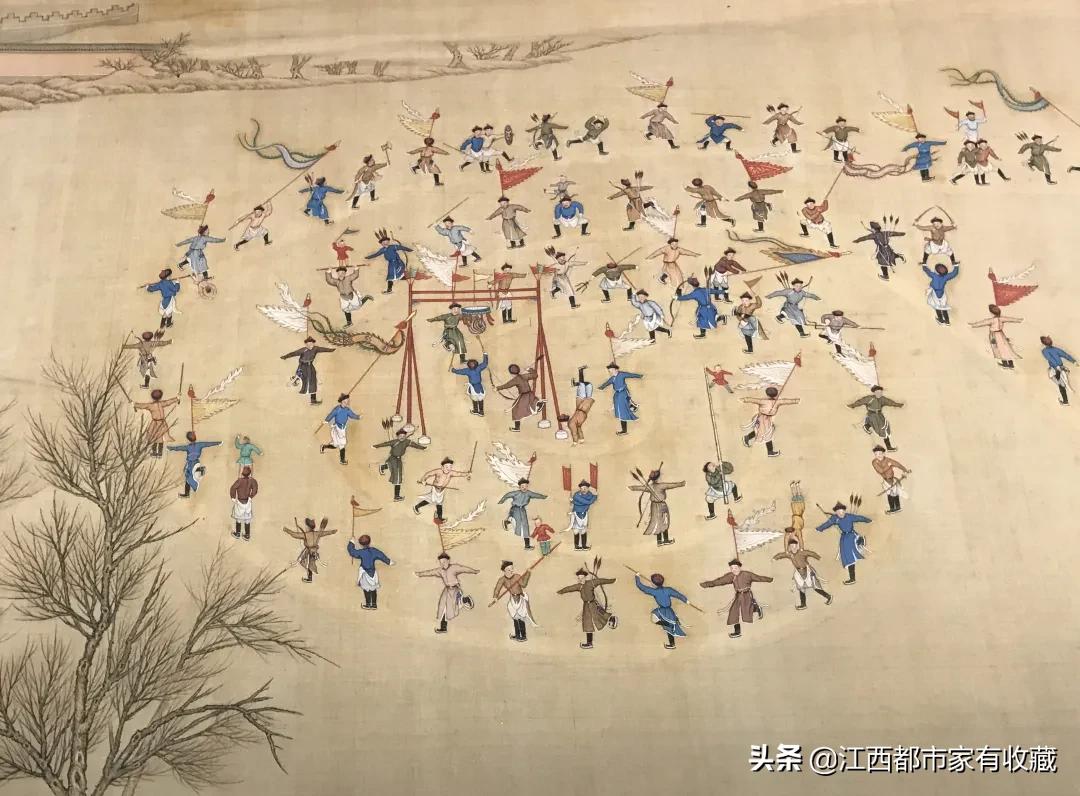 头条 @江西都市家有收藏